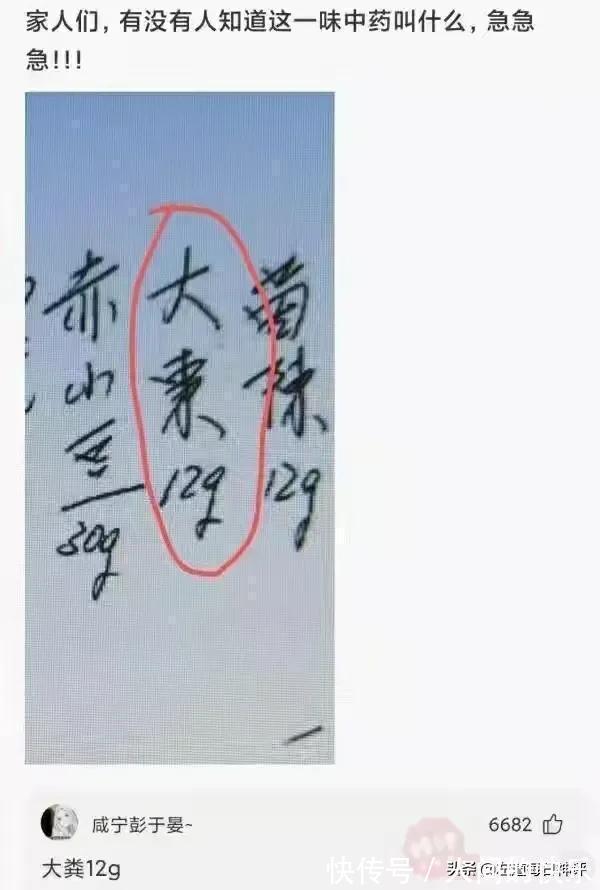 家人们，有没有人知道这一味中药叫什么，急急
急!!!
赤小豆
30g
大
12g
12g
咸宁彭于晏~
6682
大粪12g
快传号 /
头条